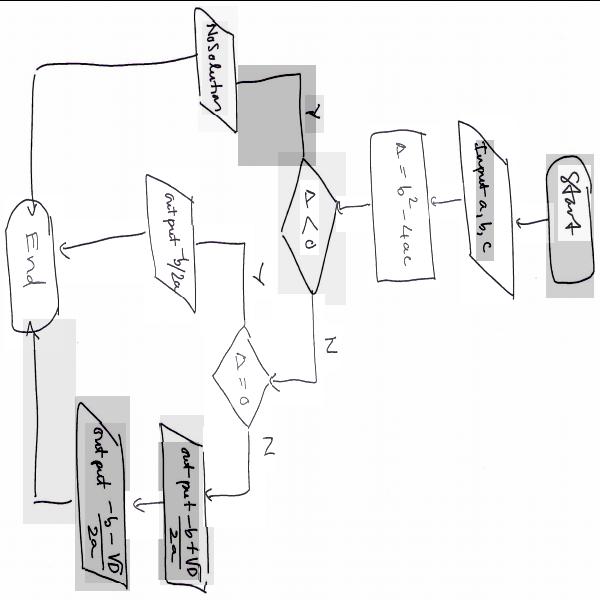 Start
Input a, b, c
Δ = b² - 4ac
Δ < 0
Y
N
No Solution
Δ = 0
Y
N
output -b/2a
output -b + √D
2a
output -b - √D
2a
End